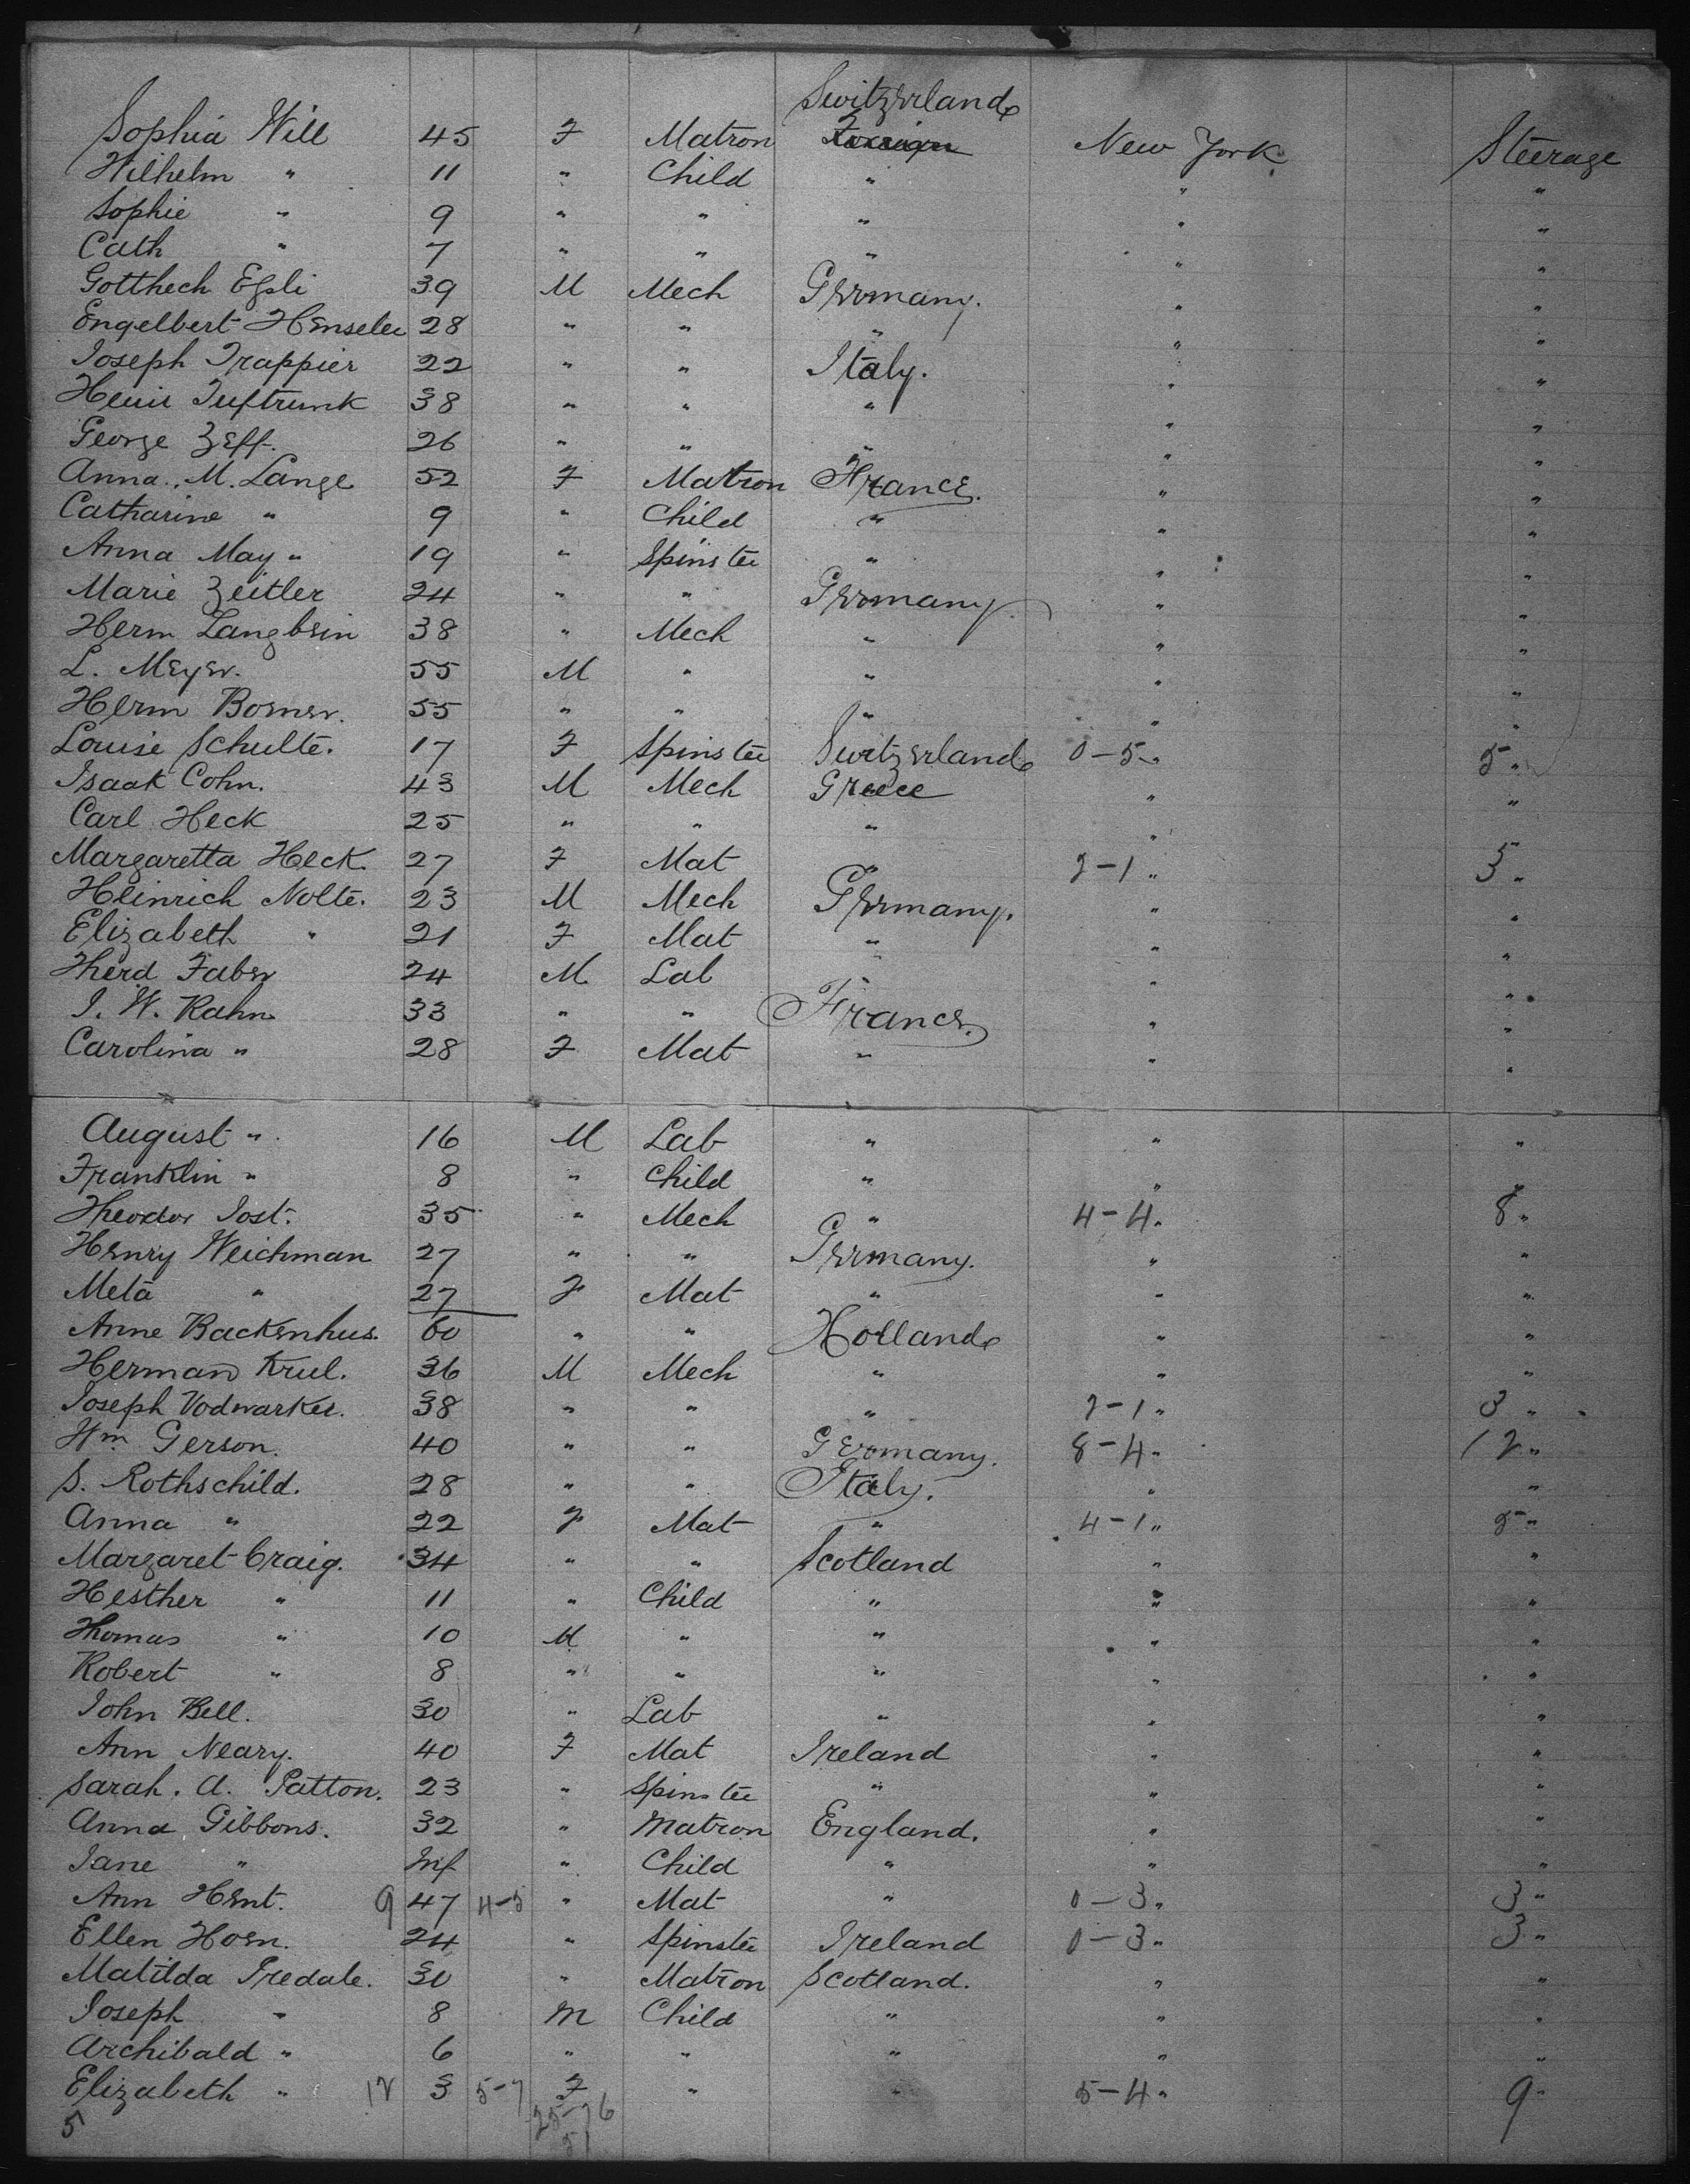 Switzerland
Sophia Will 45 F Matron Foreign New York Steerage
Wilhelm " 11 " Child " " "
Sophie " 9 " " " " "
Cath " 7 " " " " "
Gotthech Egli 39 M Mech Germany. " "
Engelbert Henseler 28 " " " " "
Joseph Trappier 22 " " Italy. " "
Henri Tuftrunk 38 " " " " "
George Zeff. 26 " " " " "
Anna. M. Lange 52 F Matron France. " "
Catharine " 9 " Child " " "
Anna May " 19 " Spinster " " "
Marie Zeitler 24 " " Germany. " "
Herm Langbein 38 " Mech " " "
L. Meyer. 55 M " " " "
Herm Bomer. 55 " " " " "
Louise Schulte. 17 F Spinster Switzerland 0-5 " 5 "
Isaak Cohn. 43 M Mech Greece " "
Carl Heck 25 " " " "
Margaretta Heck. 27 F Mat " 2-1 " 3 "
Heinrich Nolte. 23 M Mech Germany. " "
Elizabeth " 21 F Mat " " "
Therd Faber 24 M Lab " " "
J. W. Rahn 33 " " France. " "
Carolina " 28 F Mat " " "
August " 16 M Lab " " "
Franklin " 8 " Child " " "
Theodor Jost. 35 " Mech " 4-4 " 8 "
Henry Weichman 27 " " Germany. " "
Meta " 27 F Mat " " "
Anne Backenhus. 60 " " Holland " "
Herman Krul. 36 M Mech " " "
Joseph Vodwarker. 38 " " " 2-1 " 3 "
Wm Gerson. 40 " " Germany. 8-4 " 12 "
S. Rothschild. 28 " " Italy. " "
Anna " 22 F Mat " 4-1 " 5 "
Margaret Craig. 34 " " Scotland " "
Hesther " 11 " Child " " "
Thomas " 10 M " " " "
Robert " 8 " " " " "
John Bell. 30 " Lab " " "
Ann Neary. 40 F Mat Ireland " "
Sarah. A. Patton. 23 " Spinster " " "
Anna Gibbons. 32 " Matron England. " "
Jane " Inf " Child " " "
Ann Hent. 9 47 4-5 " Mat " 0-3 " 3 "
Ellen Horn. 24 " Spinster Ireland 0-3 " 3 "
Matilda Iredale. 30 " Matron Scotland. " "
Joseph " 8 M Child " " "
Archibald " 6 " " " " "
Elizabeth " 12 3 5-7 F " " 5-4 " 9 "
5 25-26
51